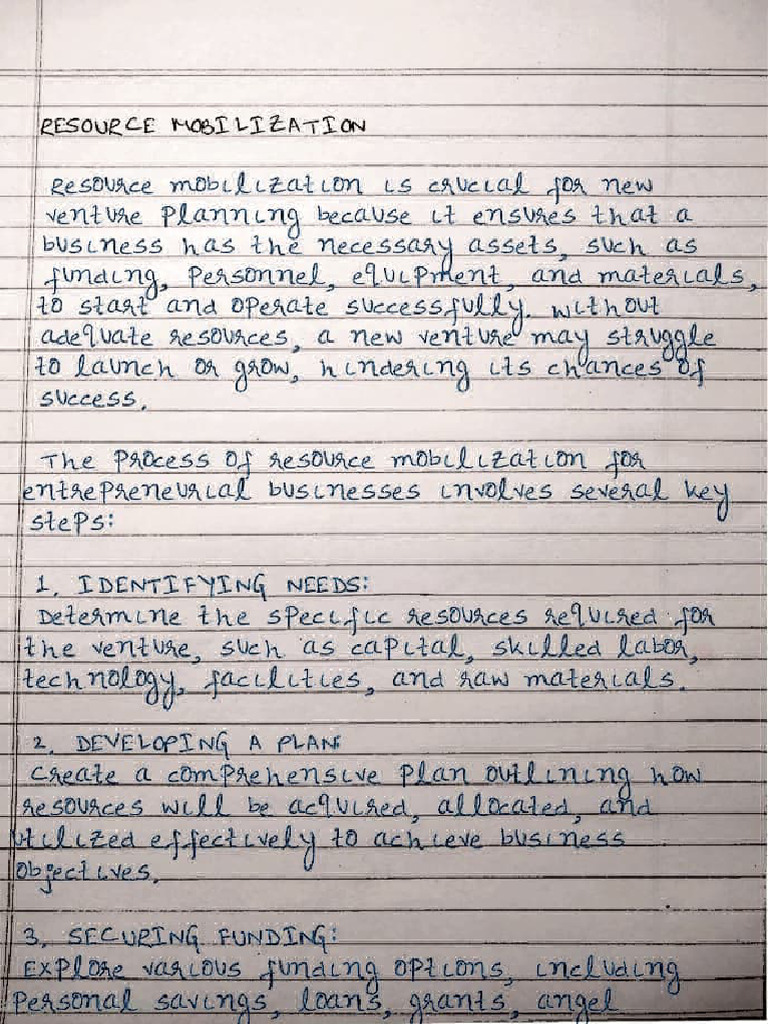 RESOURCE MOBILIZATION
Resource mobilization is crucial for new
venture Planning because it ensures that a
business has the necessary assets, such as
funding, Personnel, equipment, and materials,
to start and operate successfully. Without
adequate resources, a new venture may struggle
to launch or grow, hindering its chances of
success.
The Process of resource mobilization for
entrepreneurial businesses involves several key
steps:
1. IDENTIFYING NEEDS:
Determine the specific resources required for
the venture, such as capital, skilled labor,
technology, facilities, and raw materials.
2. DEVELOPING A PLAN:
Create a comprehensive Plan outlining how
resources will be acquired, allocated, and
utilized effectively to achieve business
objectives.
3. SECURING FUNDING:
Explore various funding options, including
Personal savings, loans, grants, angel